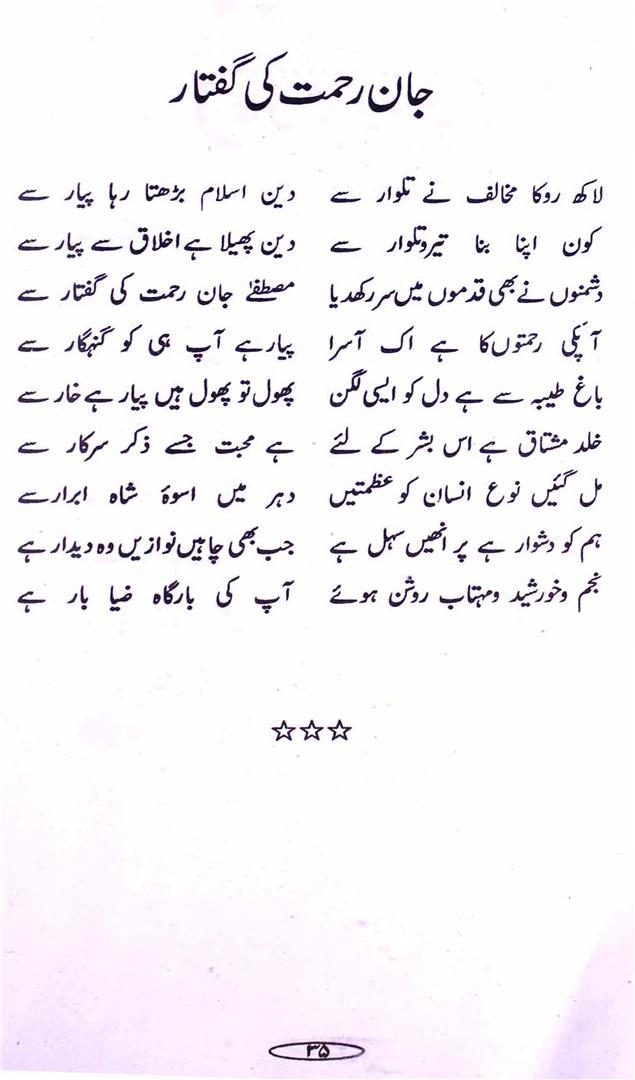 جان رحمت کی گفتار
لاکھ روکا مخالف نے تلوار سے دین اسلام بڑھتا رہا پیار سے
کون اپنا بنا تیروتلوار سے دین پھیلا ہے اخلاق سے پیار سے
دشمنوں نے بھی قدموں میں سر رکھدیا مصطفےٰ جان رحمت کی گفتار سے
آپکی رحمتوں کا ہے اک آسرا پیار ہے آپ ہی کو گنہگار سے
باغ طیبہ سے ہے دل کو ایسی لگن پھول تو پھول ہیں پیار ہے خار سے
خلد مشتاق ہے اس بشر کے لئے ہے محبت جسے ذکر سرکار سے
مل گئیں نوع انسان کو عظمتیں دہر میں اسوۂ شاہ ابرار سے
ہم کو دشوار ہے پر انھیں سہل ہے جب بھی چاہیں نوازیں وہ دیدار ہے
نجم وخورشید ومہتاب روشن ہوئے آپ کی بارگاہ ضیا بار ہے
☆☆☆
۳۵